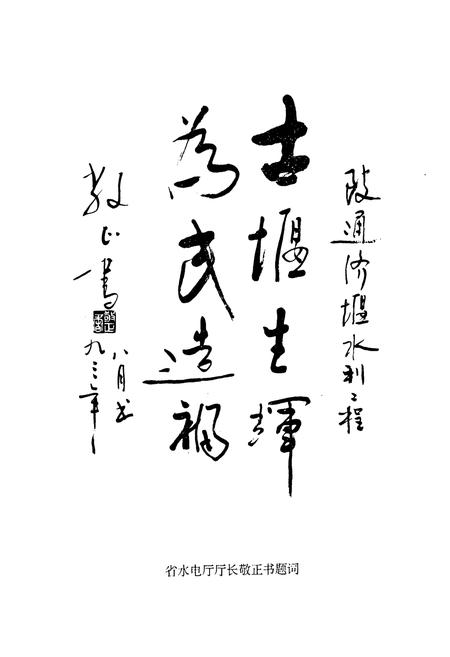 通济堰水利工程
古堰生輝
為民造福
敬正書
九三年
八月
省水电厅厅长敬正书题词